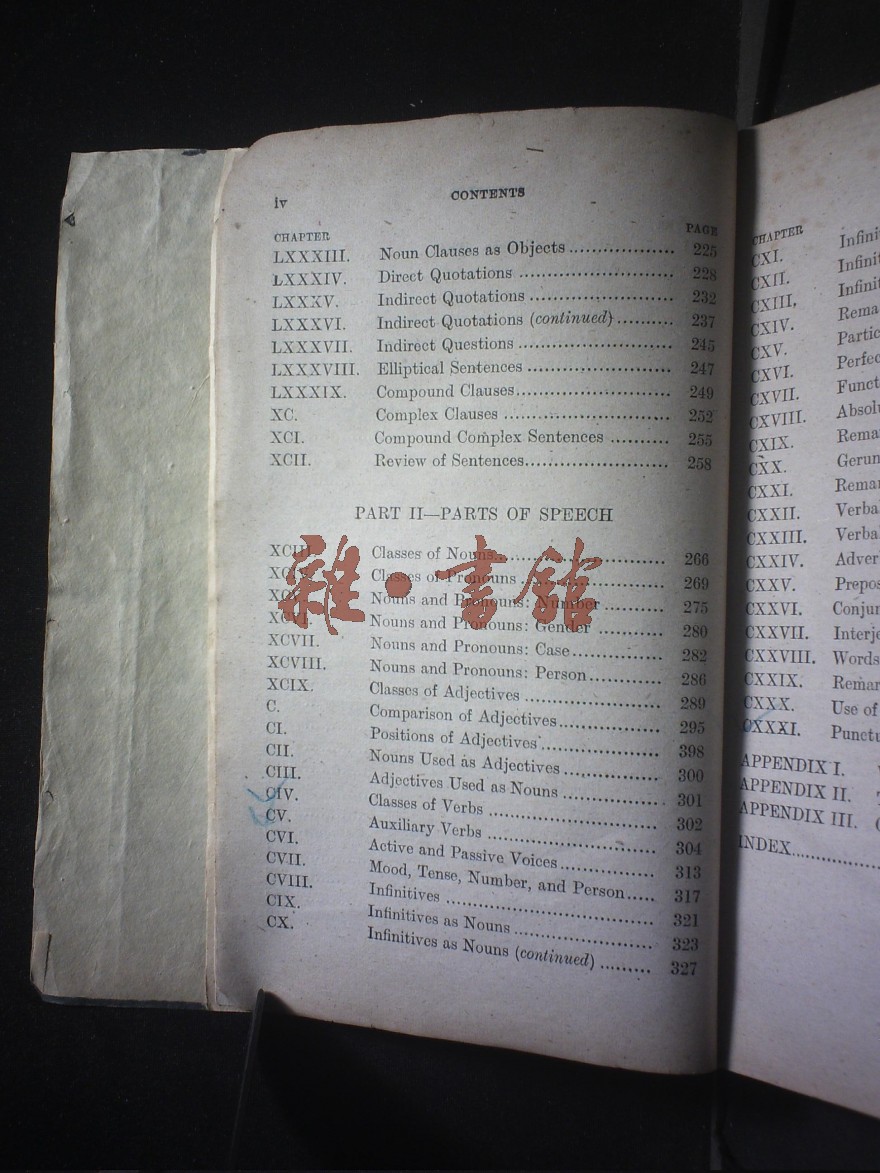 iv CONTENTS
CHAPTER PAGE
LXXXIII. Noun Clauses as Objects 225
LXXXIV. Direct Quotations 228
LXXXV. Indirect Quotations 232
LXXXVI. Indirect Quotations (continued) 237
LXXXVII. Indirect Questions 245
LXXXVIII. Elliptical Sentences 247
LXXXIX. Compound Clauses 249
XC. Complex Clauses 252
XCI. Compound Complex Sentences 255
XCII. Review of Sentences 258
PART II—PARTS OF SPEECH
XCIII. Classes of Nouns 266
Classes of Pronouns 269
Nouns and Pronouns: Number 275
XCVI. Nouns and Pronouns: Gender 280
XCVII. Nouns and Pronouns: Case 282
XCVIII. Nouns and Pronouns: Person 286
XCIX. Classes of Adjectives 289
C. Comparison of Adjectives 295
CI. Positions of Adjectives 398
CII. Nouns Used as Adjectives 300
CIII. Adjectives Used as Nouns 301
CIV. Classes of Verbs 302
CV. Auxiliary Verbs 304
CVI. Active and Passive Voices 313
CVII. Mood, Tense, Number, and Person 317
CVIII. Infinitives 321
CIX. Infinitives as Nouns 323
CX. Infinitives as Nouns (continued) 327
雜·書館
CHAPTER
CXI. Infini
CXII. Infini
CXIII, Infini
CXIV. Rema
CXV. Partic
CXVI. Perfec
CXVII. Funct
CXVIII. Absol
CXIX. Rema
CXX. Gerun
CXXI. Rema
CXXII. Verba
CXXIII. Verba
CXXIV. Adver
CXXV. Prepos
CXXVI. Conju
CXXVII. Interje
CXXVIII. Words
CXXIX. Remar
CXXX. Use of
CXXXI. Punct
APPENDIX I.
APPENDIX II.
APPENDIX III.
INDEX